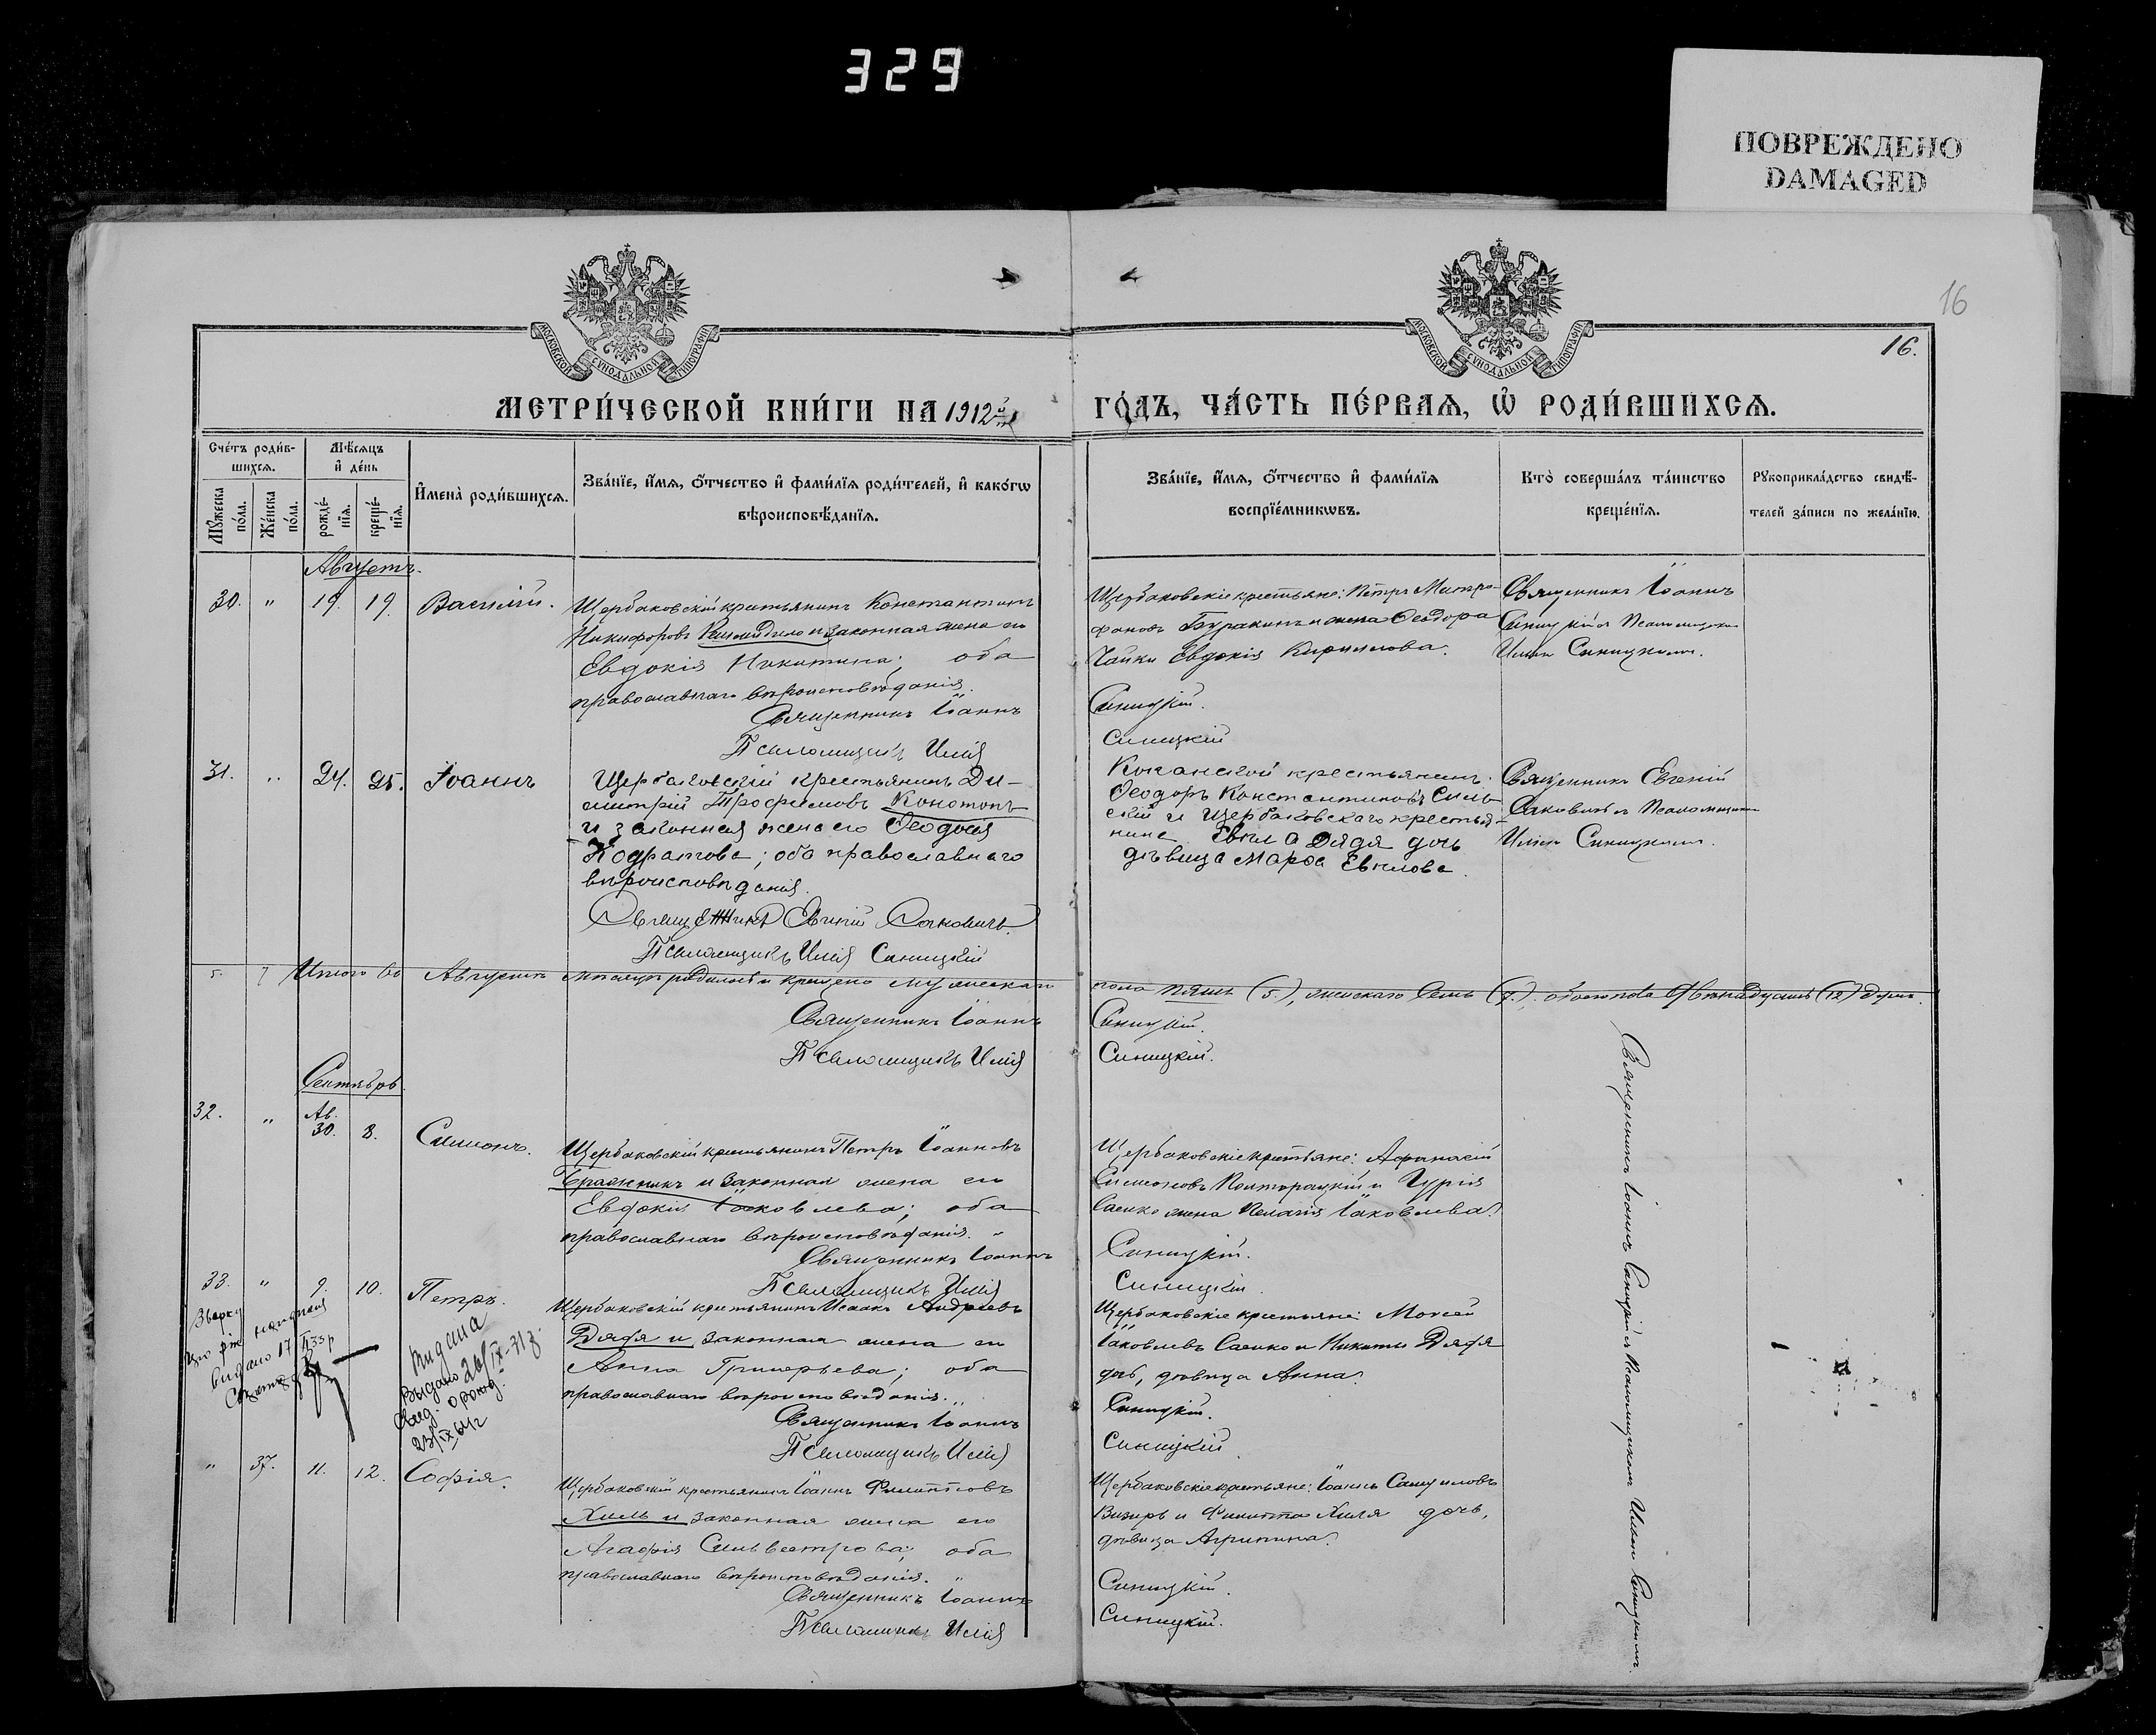 329
ПОВРЕЖДЕНО
DAMAGED
16
16.
МОСКОВСКОЙ СѴНОДАЛЬНОЙ ТИПОГРАФІИ
МОСКОВСКОЙ СѴНОДАЛЬНОЙ ТИПОГРАФІИ
МЕТРИ́ЧЕСКОЙ КНИ́ГИ НА 1912й
ГО́ДЪ, ЧА́СТЬ ПЕ́РВАѦ, Ѡ҆ РОДИ́ВШИХСѦ.
Сче́тъ роди́в-
шихсѧ.
Мѣ́сѧцъ
и҆ де́нь
Мꙋ́жеска
по́ла.
Же́нска
по́ла.
рожде́-
нїѧ.
креще́-
нїѧ.
И҆мена̀ роди́вшихсѧ.
Зва́нїе, и҆́мѧ, ѻ҆́тчество и҆ фами́лїѧ роди́телей, и҆ како́гѡ
вѣроисповѣ́данїѧ.
Зва́нїе, и҆́мѧ, ѻ҆́тчество и҆ фами́лїѧ
воспрїе́мникѡвъ.
Кто̀ соверша́лъ та́инство
креще́нїѧ.
Рꙋкоприкла́дство свидѣ́-
телей за́писи по жела́нїю.
Августъ.
30. " 19. 19. Василій.
Щербаковскій крестьянинъ Константинъ
Никифоровъ и законная жена его
Евдокія Никитина; оба
православнаго вѣроисповѣданія.
Священникъ Іоаннъ
Псаломщикъ Илія
Щербаковскіе крестьяне: Петръ Митро-
фановъ Буракинъ и жена Ѳеодора
Чайки Евдокія Кириллова.
Синицкій.
Синицкій
Священникъ Іоаннъ
Синицкій и Псаломщикъ
Илія Синицкій.
31. " 24. 25. Іоаннъ
Щербаковскій крестьянинъ Ди-
митрій Трофимовъ Конотопъ
и законная жена его Ѳеодосія
Кодратова; оба православнаго
вѣроисповѣданія.
Священникъ Евгеній Саковичъ.
Псаломщикъ Илія Синицкій
крестьянинъ
Ѳеодоръ Константиновъ Силь-
скій и Щербаковскаго крестья-
нина Евила Дядя дочь
дѣвица Марѳа Евилова.
Священникъ Евгеній
Саковичъ и Псаломщикъ
Илія Синицкій.
5. 7 Итого въ Августѣ мѣсяцѣ родилось и крещено мужескаго
пола пять (5.), женскаго семь (7.), обоего пола двѣнадцать (12) душъ.
Священникъ Іоаннъ
Псаломщикъ Илія
Синицкій.
Синицкій.
Сентябрь.
32. " Ав. 30. 8. Симеонъ.
Щербаковскій крестьянинъ Петръ Іоанновъ
Бражникъ и законная жена его
Евдокія Іаковлева; оба
православнаго вѣроисповѣданія. "
Священникъ Іоаннъ
Псаломщикъ Илія
Щербаковскіе крестьяне: Аѳанасій
Симеоновъ Полторацкій и Гурія
Саенко жена Пелагія Іаковлева.
Синицкій.
Синицкій.
33. " 9. 10. Петръ.
Щербаковскій крестьянинъ Исаакъ Андреевъ
Дядя и законная жена его
Анна Григорьева; оба
православнаго вѣроисповѣданія. "
Священникъ Іоаннъ
Псаломщикъ Илія
Щербаковскіе крестьяне: Моисей
Іаковлевъ Саенко и Никиты Дядя
дочь, дѣвица Анна.
Синицкій.
Синицкій
видано 17
Видана
Выдано 26/IX-71г.
свид. о рожд.
23/IX 64г
" 37. 11. 12. Софія.
Щербаковскій крестьянинъ Іоаннъ Филипповъ
Хиль и законная жена его
Агафія Сильвестрова; оба
православнаго вѣроисповѣданія. "
Священникъ Іоаннъ
Псаломщикъ Илія
Щербаковскіе крестьяне: Іоаннъ Самуиловъ
Визиръ и Филиппа Хиля дочь,
дѣвица Агрипина.
Синицкій.
Синицкій.
Священникъ Іоаннъ Синицкій и Псаломщикомъ Иліею Синицкимъ